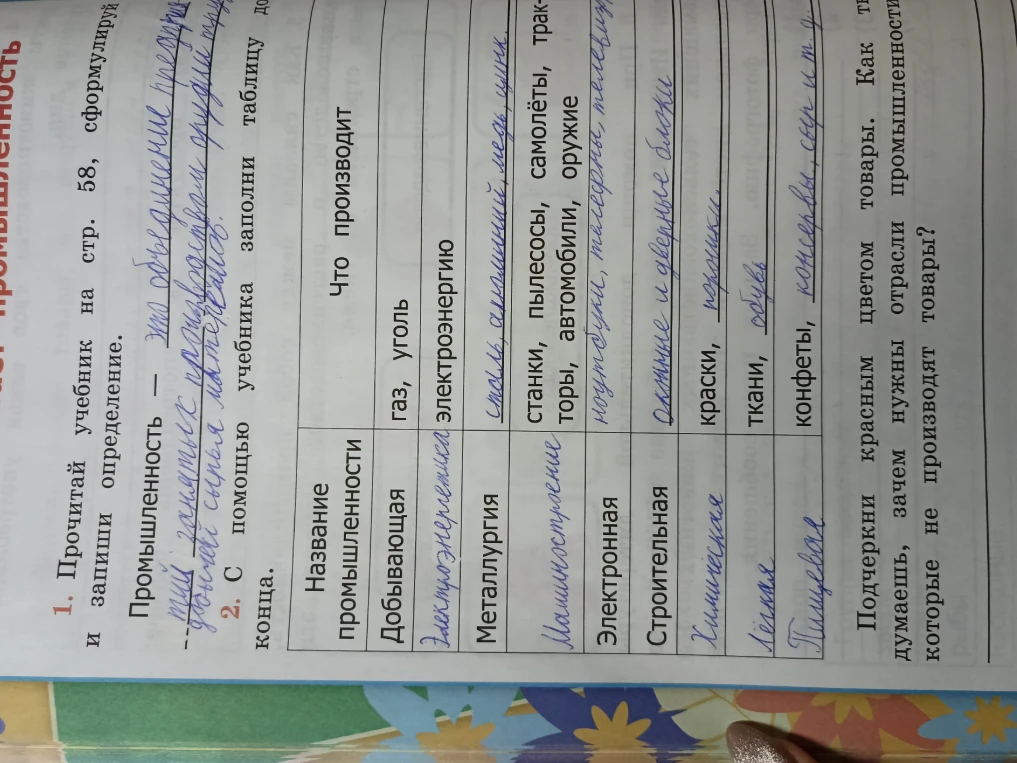 промышленность
1. Прочитай учебник на стр. 58, сформулируй
и запиши определение.
Промышленность — это объединение
тий занятых производством
сырья материалов.
2. С помощью учебника заполни таблицу до
конца.
Название промышленности
Что производит
Добывающая
газ, уголь
Электроэнергетика
электроэнергию
Металлургия
сталь, алюминий, медь, цинк
Машиностроение
станки, пылесосы, самолёты, трак-
торы, автомобили, оружие
Электронная
ноутбуки, телефоны,
Строительная
оконные и дверные блоки
Химическая
краски,
Лёгкая
ткани, обувь
Пищевая
конфеты, консервы, сыр и т. д.
Подчеркни красным цветом товары. Как ты
думаешь, зачем нужны отрасли промышленности
которые не производят товары?